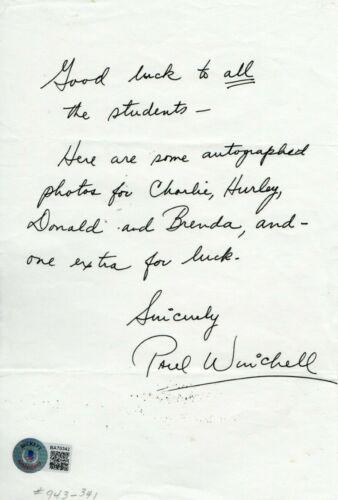 Good luck to all
the students —
Here are some autographed
photos for Charlie, Hurley,
Donald and Brenda, and -
one extra for luck.
Sincerely
Paul Winchell
BECKETT
BA70342
#943-341